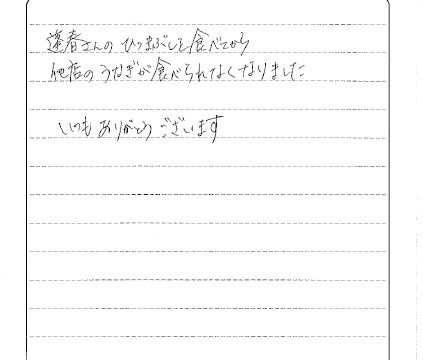 蓬春さんの ひつまぶしを食べてから
他店の うなぎが食べられなくなりました
いつも ありがとう ございます